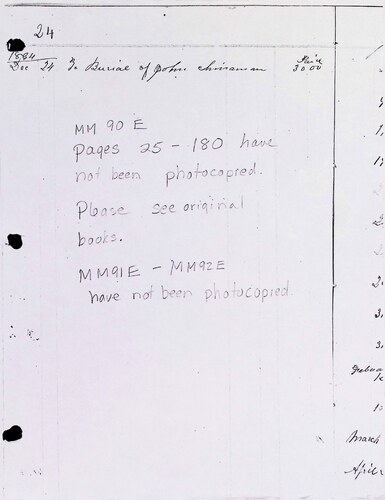 24
1884
Dec 24 To Burial of John Chinaman Paid 30 00
MM 90 E
Pages 25 - 180 have
not been photocopied.
Please see original
books.
MM91E - MM92E
have not been photocopied.
March
April